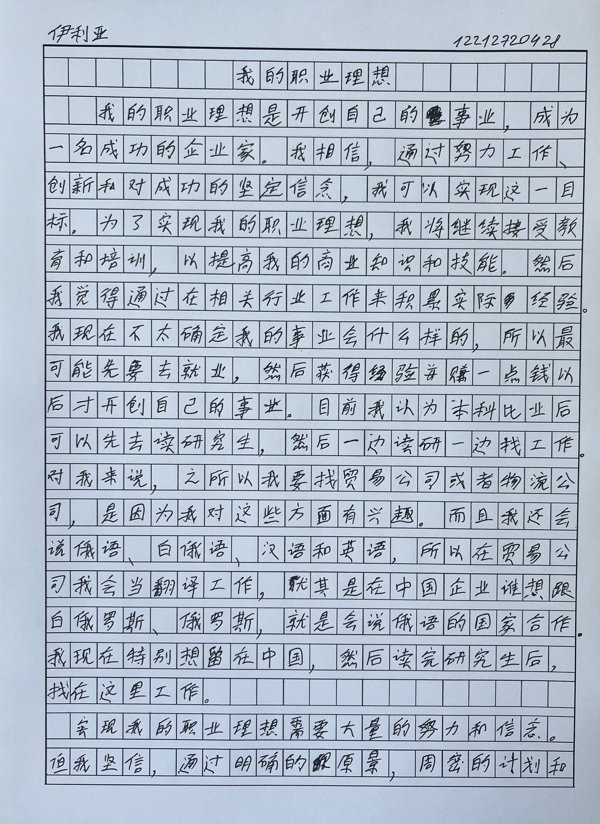 伊利亚 12212720428
我的职业理想
我的职业理想是开创自己的事业，成为
一名成功的企业家。我相信，通过努力工作、
创新和对成功的坚定信念，我可以实现这一目
标。为了实现我的职业理想，我将继续接受教
育和培训，以提高我的商业知识和技能。然后
我觉得通过在相关行业工作来积累实际经验。
我现在不太确定我的事业会什么样的，所以最
可能先要去就业，然后获得经验并赚一点钱以
后才开创自己的事业。目前我认为本科比业后
可以先去读研究生，然后一边读研一边找工作。
对我来说，之所以我要找贸易公司或者物流公
司，是因为我对这些方面有兴趣。而且我还会
说俄语、白俄语、汉语和英语，所以在贸易公
司我会当翻译工作，就其是在中国企业谁想跟
白俄罗斯、俄罗斯，就是会说俄语的国家合作。
我现在特别想留在中国，然后读完研究生后，
找在这里工作。
实现我的职业理想需要大量的努力和信念。
但我坚信，通过明确的原景，周密的计划和